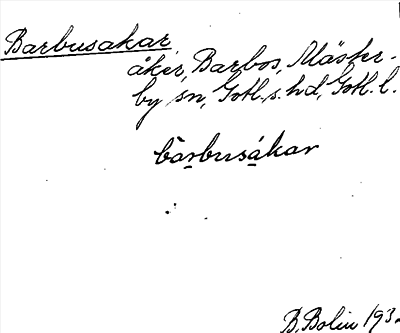 Barbusakar
åker, Barbos, Mäster-
by sn, Gotl. s. hd, Gotl. l.
bàrbusákar
B. Bolin